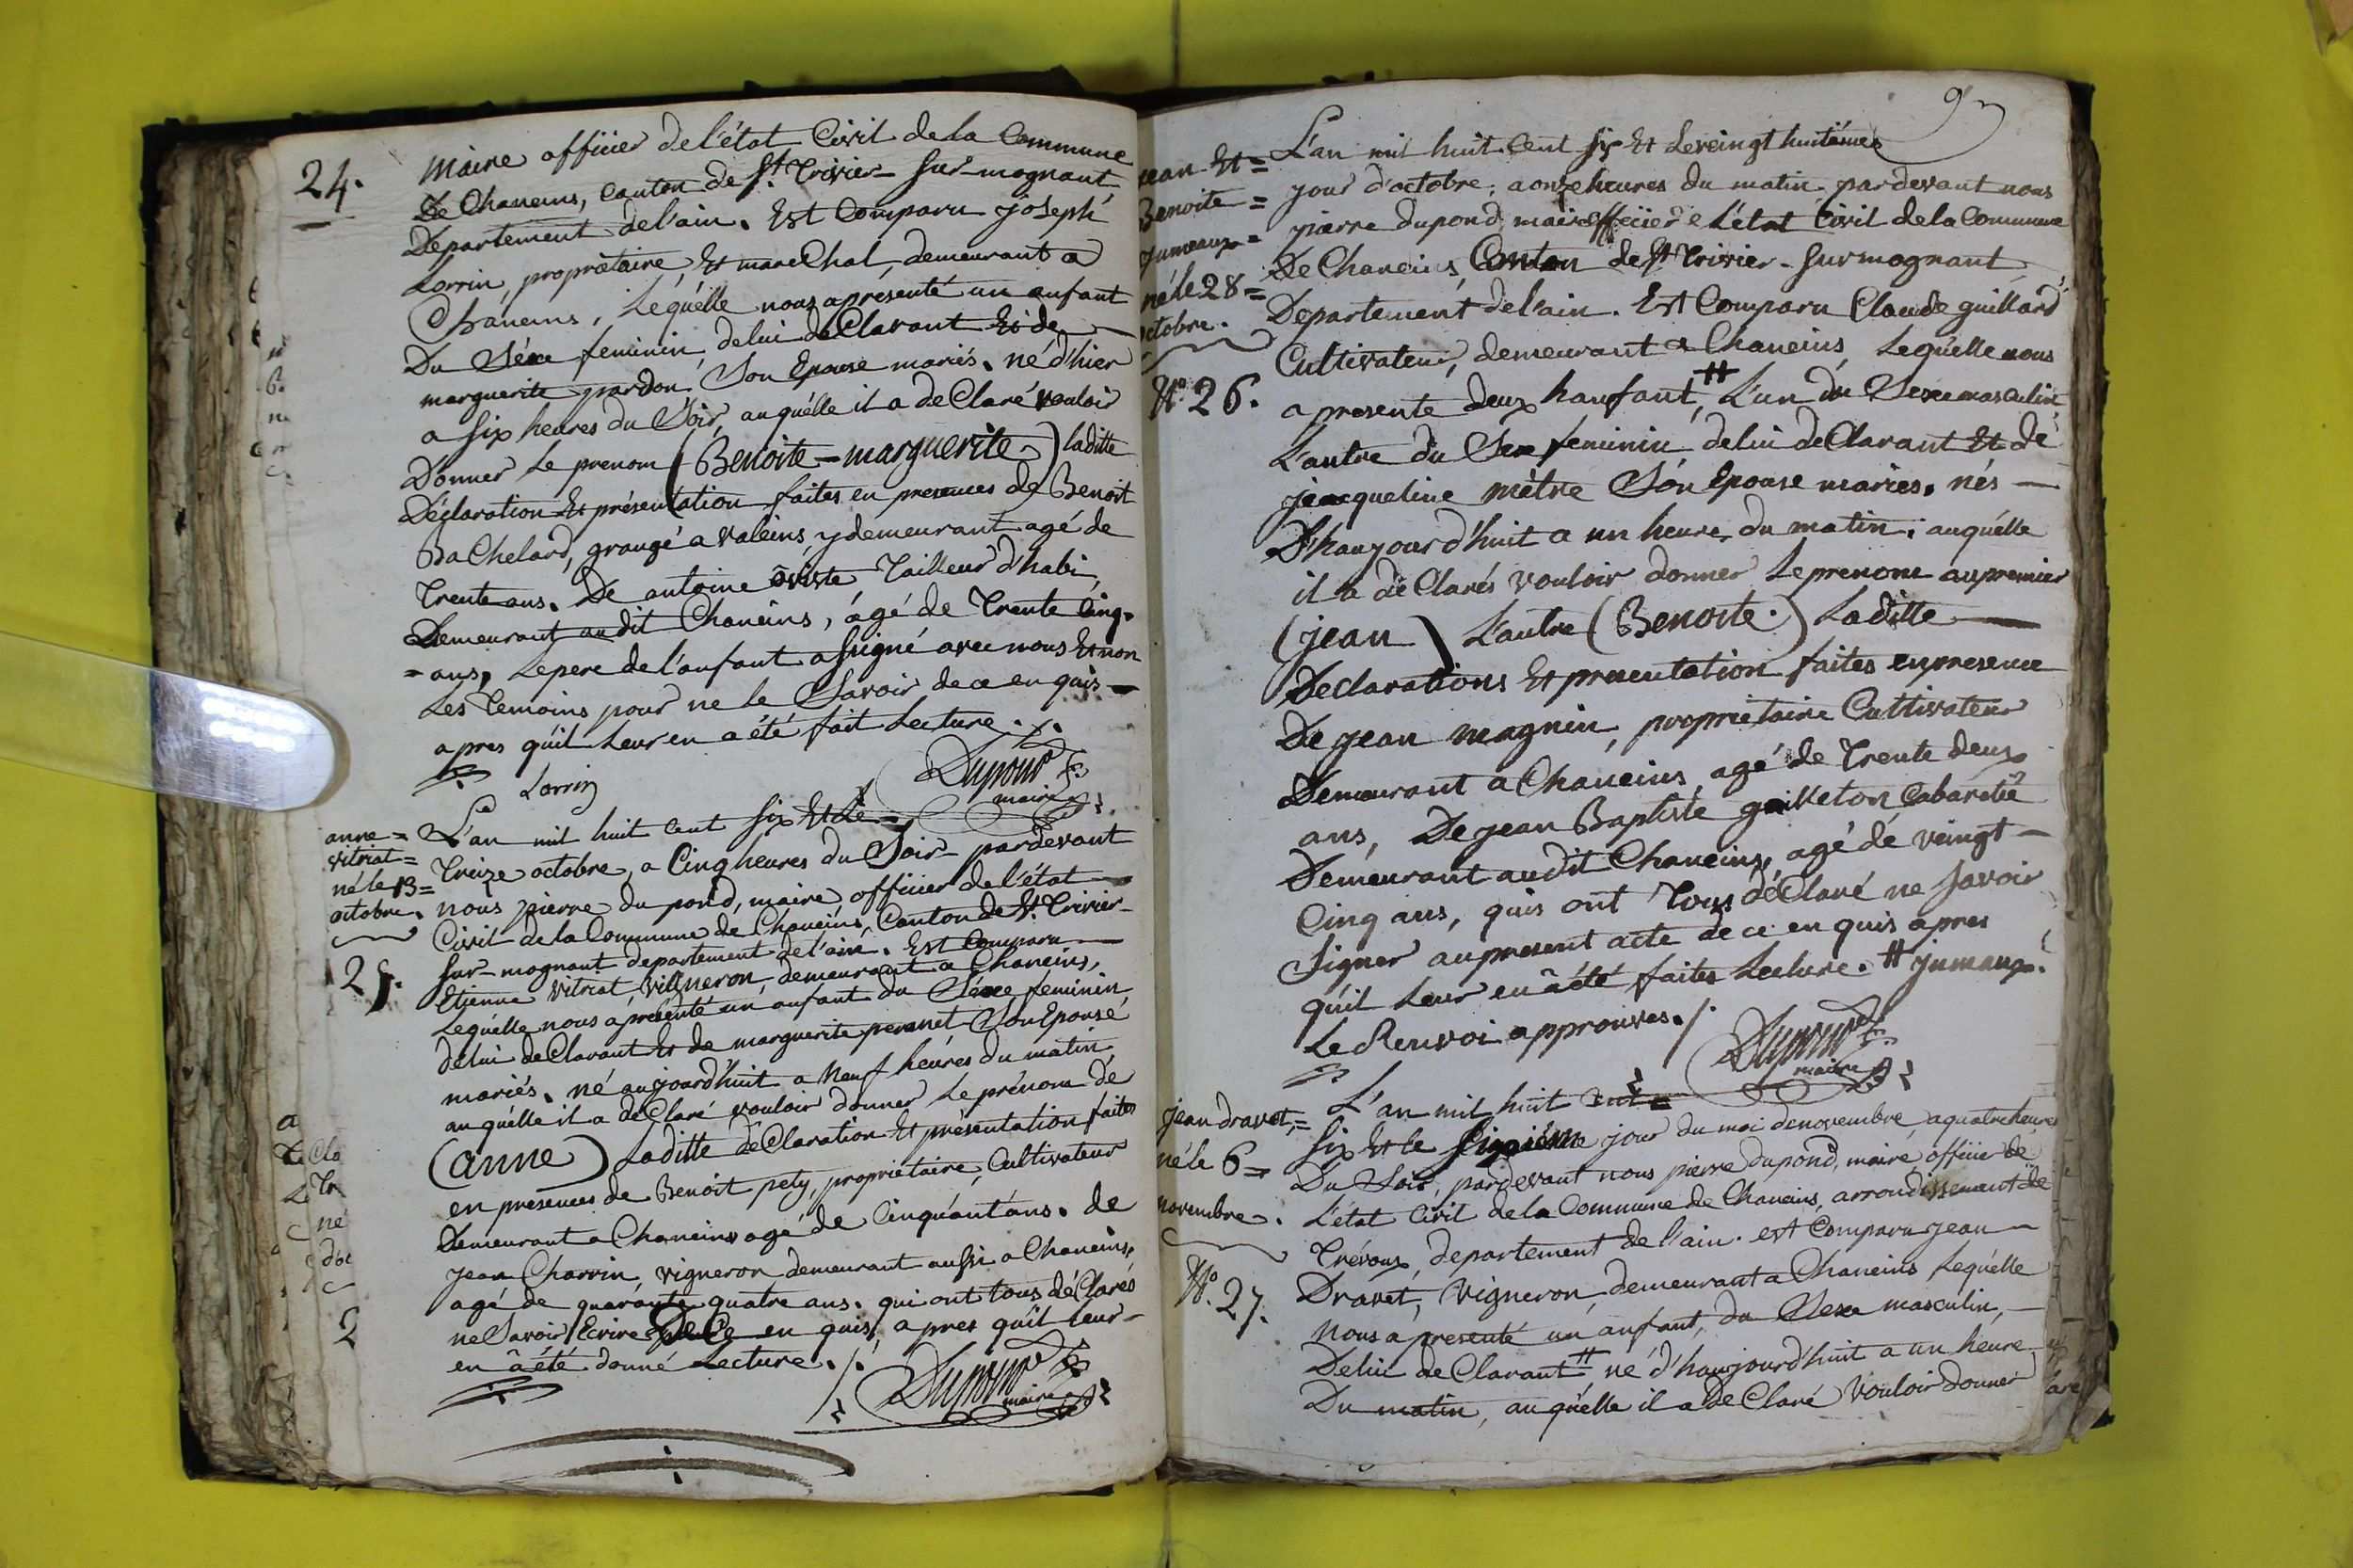 24.
maire officier de l'état Civil de la Commune
De Chaneins, canton de St. Trivier sur-mognant,
Departement de l'ain. Est Comparu joseph
Lorrin, propriétaire, Et mareChal, demeurant a
Chaneins, Lequélle nous apresenté un anfant
Du Séxe feminin, delui deClarant Et de
marguerite pardon Son Epouse mariés. né d'hier
a six heures du Soir, auquélle il a deClaré vouloir
Donner Le prenom (Benoite-marguerite) laditte
Déclaration Et présentation faites en presences de Benoit
BaChelard, grangé a Valeins, y demeurant agé de
Trente ans. De antoine Tailleur d'habi,
Demeurant audit Chaneins, ágé de Trente Cinq-
=ans, Lepere de l'anfant asigné avec nous Et non
Les Temoins pour ne le Savoir de ce en quis
apres qu'il Leur en a été fait Lecture ./.
Lorrin
Dupond
maire
anne=
vitriat=
né le 13=
octobre.
25.
L'an mil huit cent six Et Le
Treize octobre, a Cinq heures du Soir pardevant
nous pierre dupond, maire, officier de l'état
Civil de la Commune de Chaneins, Canton de St. Trivier-
sur-mognant departement de l'ain. Est Comparu
Etienne vitriat, vigneron, demeurant a Chaneins,
Lequélle nous apresenté un anfant du Séxe feminin,
delui deClarant Et de marguerite peronet Son Epouse,
mariés. né aujourd'huit a Neuf heures du matin,
auquélle il a deClaré vouloir donner Le prénom de
(anne) Laditte deClaration Et présentation faites
en presences de Benoit pety, propriétaire, Cultivateur
Demeurant a Chaneins agé de Cinquant ans. de
jean Charvin, vigneron demeurant aussi a Chaneins,
agé de quarante quatre ans. qui ont tous déClarés
ne Savoir Ecrire De Ce en quis, apres qu'il leur
en a été donné Lecture ./.
Dupond
maire
97
jean Et=
Benoite=
jumeaux=
né le 28=
octobre.
N° 26.
L'an mil huit Cent six Et Leveingt huitiémes
jour d'octobre, a onze heures du matin, pardevant nous
pierre dupond, maire officier de L'état Civil de la Commune
De Chaneins, Canton de St Trivier-sur mognant
Departement de l'ain. Est Comparu Claude guillard
Cultivateur, demeurant a Chaneins, Lequélle nous
a presente deux hanfant, # L'un du Sexe masculin
L'autre du Sexe feminin, delui deClarant Et de
jeacqueline mètre Són Epouse mariés. nés
D'haujourd'huit a un heure, du matin. auquélle
il a deClarés vouloir donner Le prenom au premier
(jean) L'autre (Benoite.) Laditte
Declarations Et presentation faites en presence
De jean magnin, proprietaire Cultivateur
Demeurant a Chaneins, agé de Trente deux
ans, De jean Baptiste gailleton Cabaretié
Demeurant audit Chaneins, agé de veingt
Cinq ans, quis ont Tous deClaré ne Savoir
Signer au present acte de ce en quis apres
qu'il Leur en a été faites Lecture. # jumeaux.
Le Renvoi approuves ./.
Dupond
maire
jean dravet,=
né le 6=
novembre.
N° 27.
L'an mil huit cent
six Et le Sixiéme jour du moi de novembre, a quatre heures
Du Soir, pardevant nous pierre dupond, maire, officié de
L'état Civil de la Commune de Chaneins, arrondissement de
Trévoux, departement de l'ain. est Comparu jean
Dravet, Vigneron, demeurant a Chaneins Lequélle
Nous a presenté un anfant, du Sexe masculin,
Delui deClarant # né d'haujourd'huit a un heure
Du matin, auquélle il a deClaré Vouloir donner